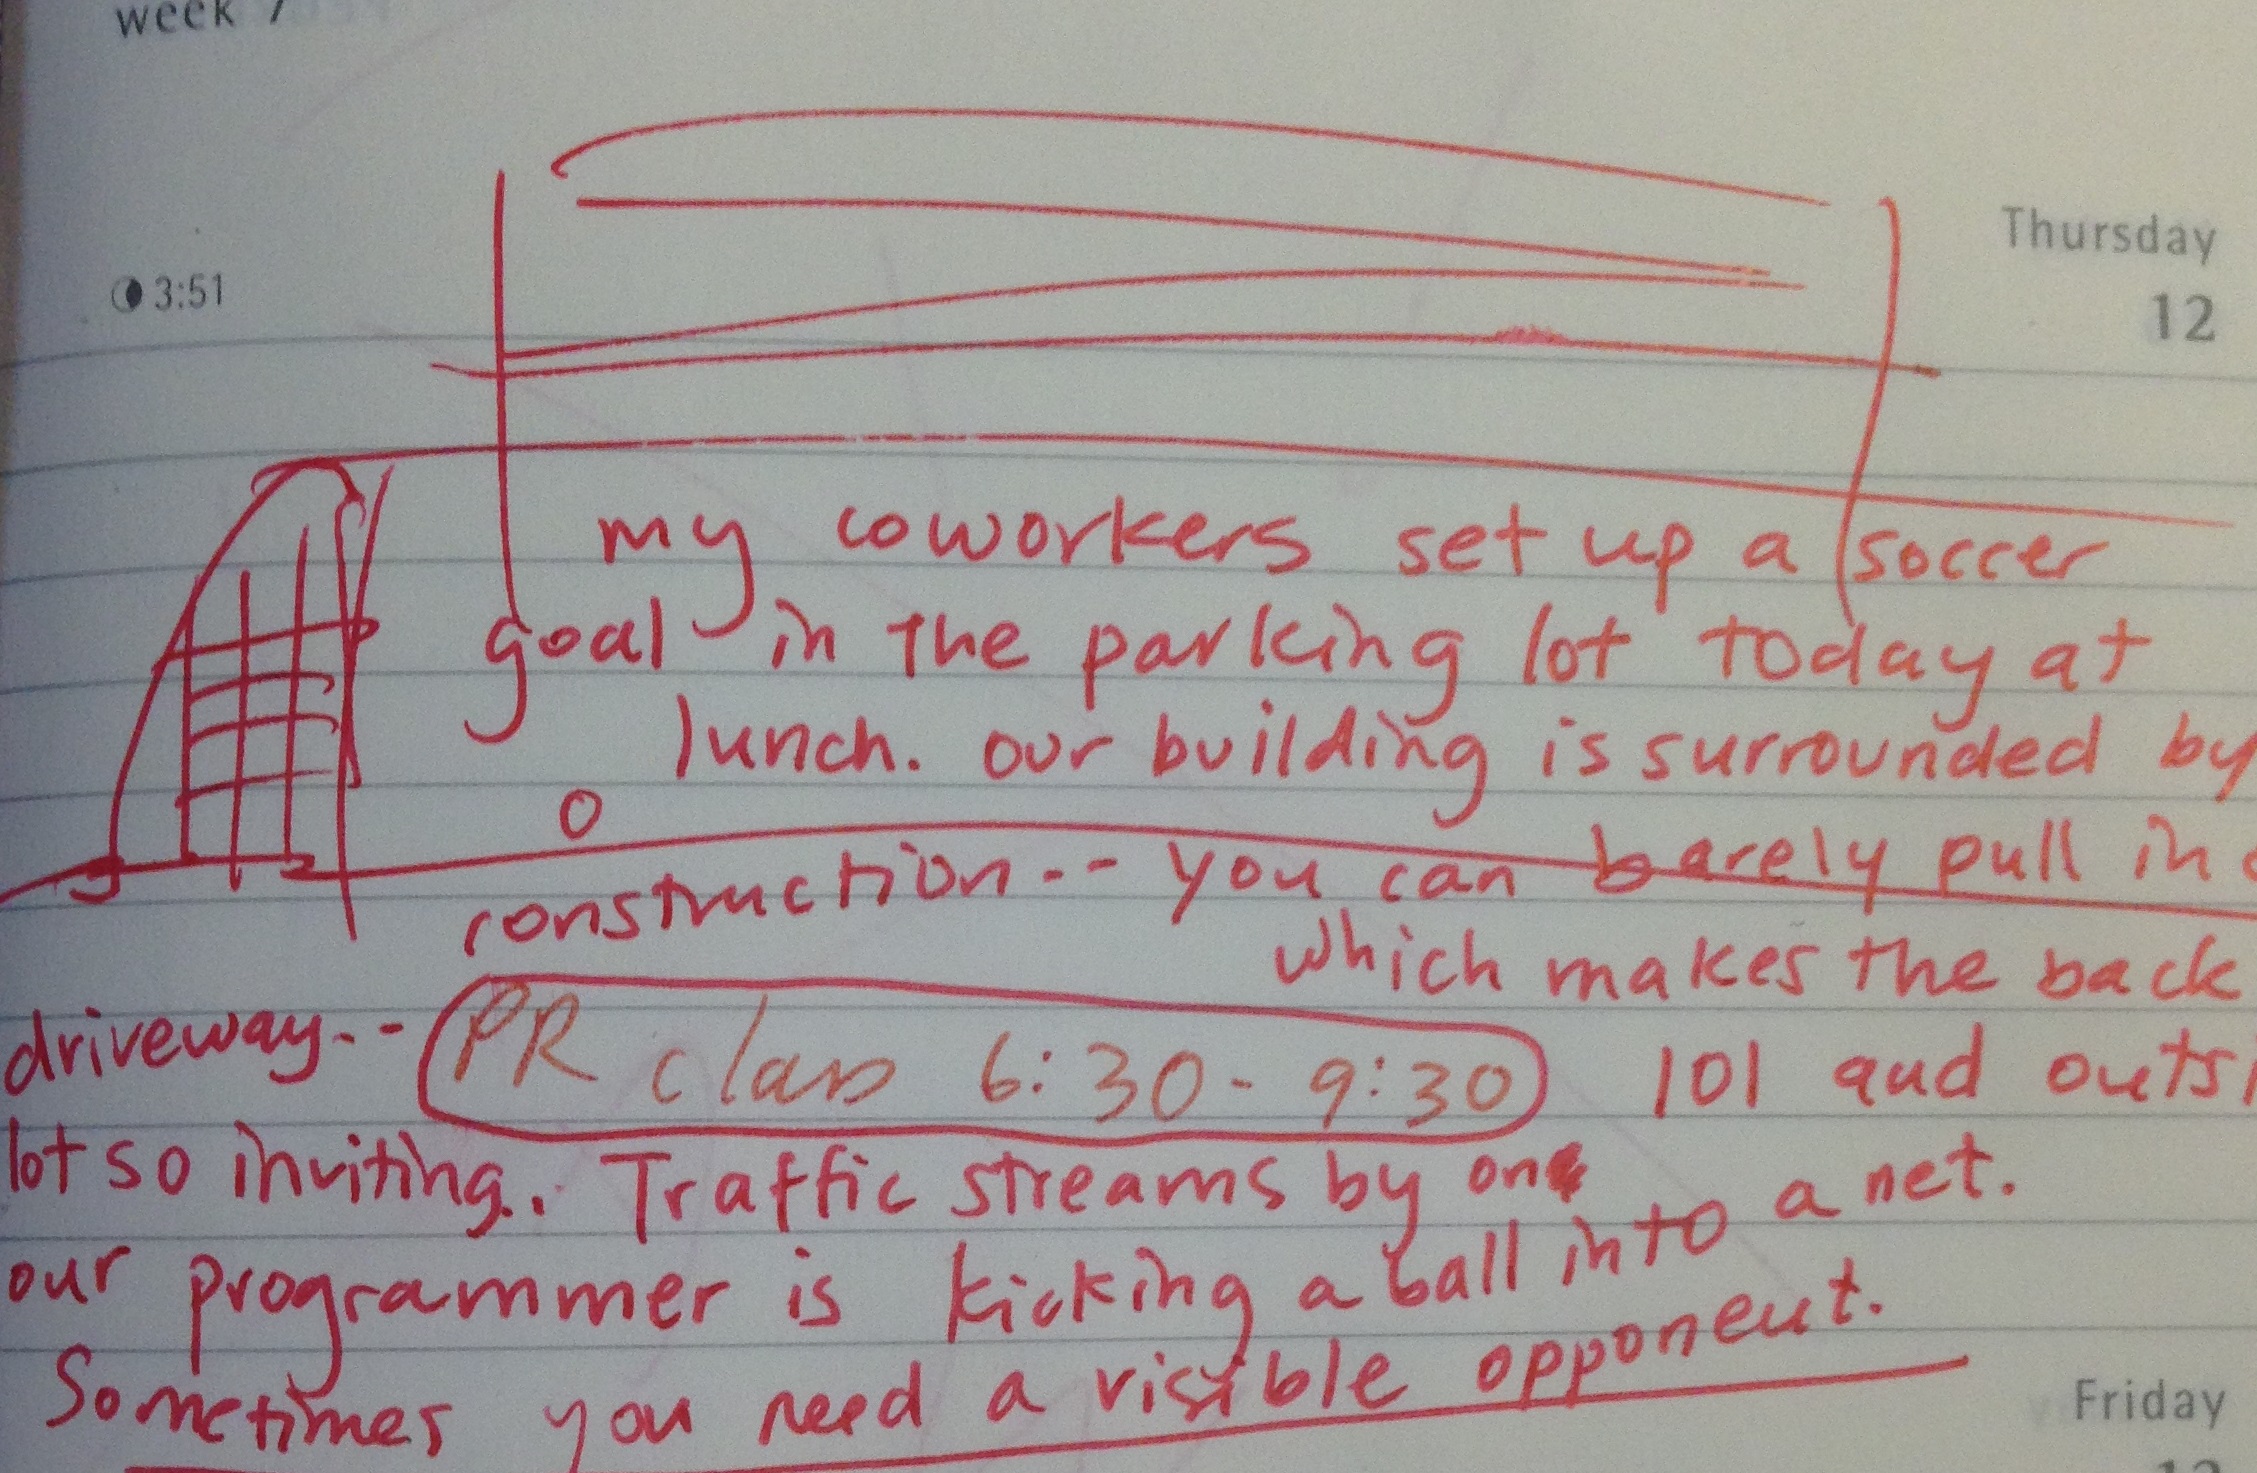 week 7
Thursday
3:51
12
my coworkers set up a soccer
goal in the parking lot today at
lunch. our building is surrounded by
construction -- you can barely pull in
which makes the back
driveway -- PR class 6:30 - 9:30 101 and outsi
lot so inviting. Traffic streams by on
our programmer is kicking a ball into a net.
Sometimes you need a visible opponent.
Friday